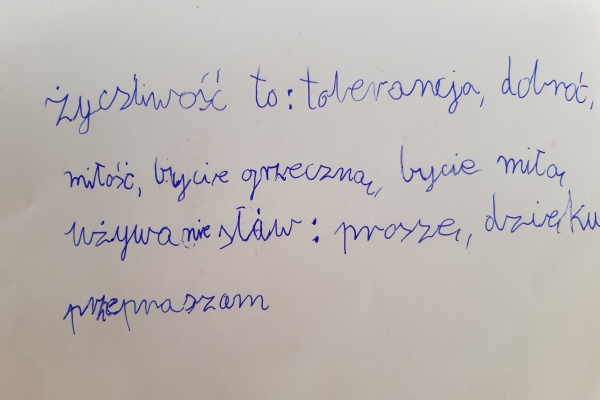 życzliwość to: tolerancja, dobroć,
miłość, bycie grzeczną, bycie miłą
używanie słów: proszę, dzięku
przepraszam